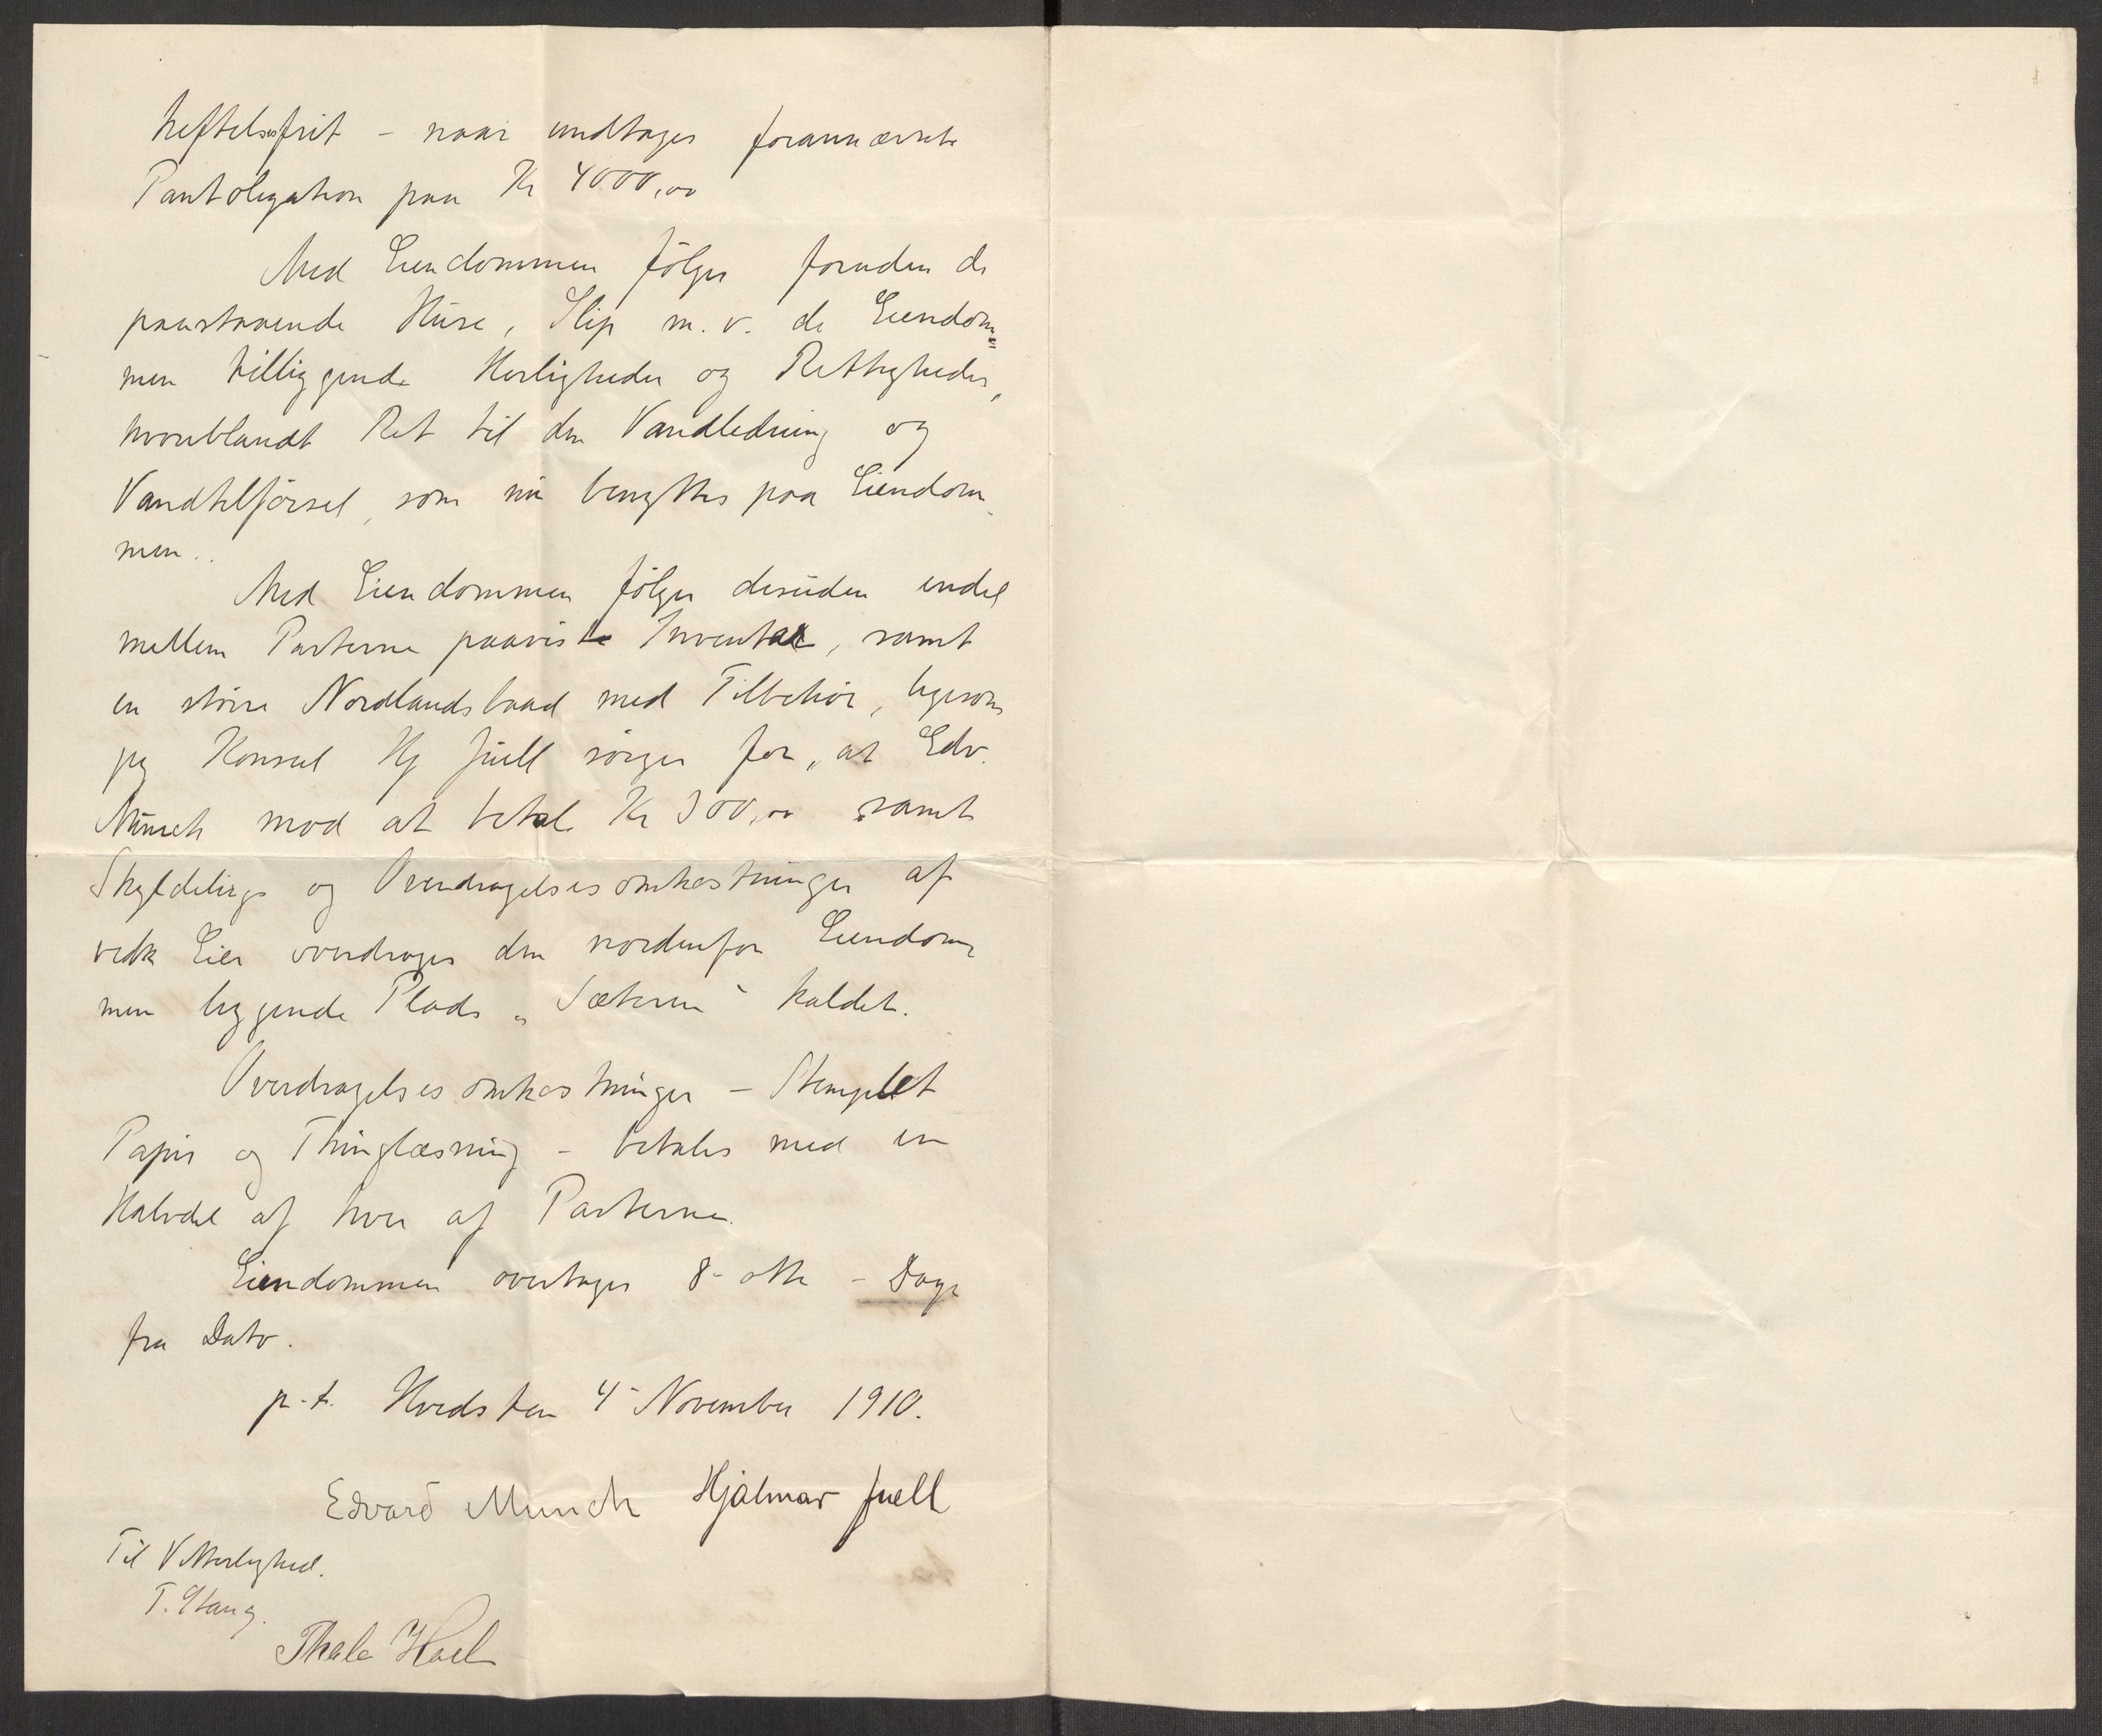 heftelsesfrit – naar undtages forannævnte
Pantobligation paa Kr 4000,00
Med Eiendommen følger foruden de
paastaaende Huse, Slip m. v. de Eiendom=
men tilliggende Herligheder og Rettigheder,
hvoriblandt Ret til den Vandledning og
Vandtilførsel, som nu benyttes paa Eiendom
men.
Med Eiendommen følger desuden endel
mellem Parterne paaviste Inventar, samt
en større Nordlandsbaad med Tilbehør, ligesom
jeg Konsul Hj Juell sørger for, at Edv.
Munch mod at betale Kr 300,00 samt
Skyldelings og Overdragelsesomkostninger af
vedk Eier overdrages den nordenfor Eiendom
men liggende Plads „Sæteren" kaldet.
Overdragelsesomkostninger – Stemplet
Papir og Thinglæsning – betales med en
Halvdel af hver af Parterne.
Eiendommen overtages 8 - otte - Dage
fra Dato.
p. t. Hvidsten 4 November 1910.
Edvard Munch Hjalmar Juell
Til Vitterlighed.
T. Stang.
Thala Hoel